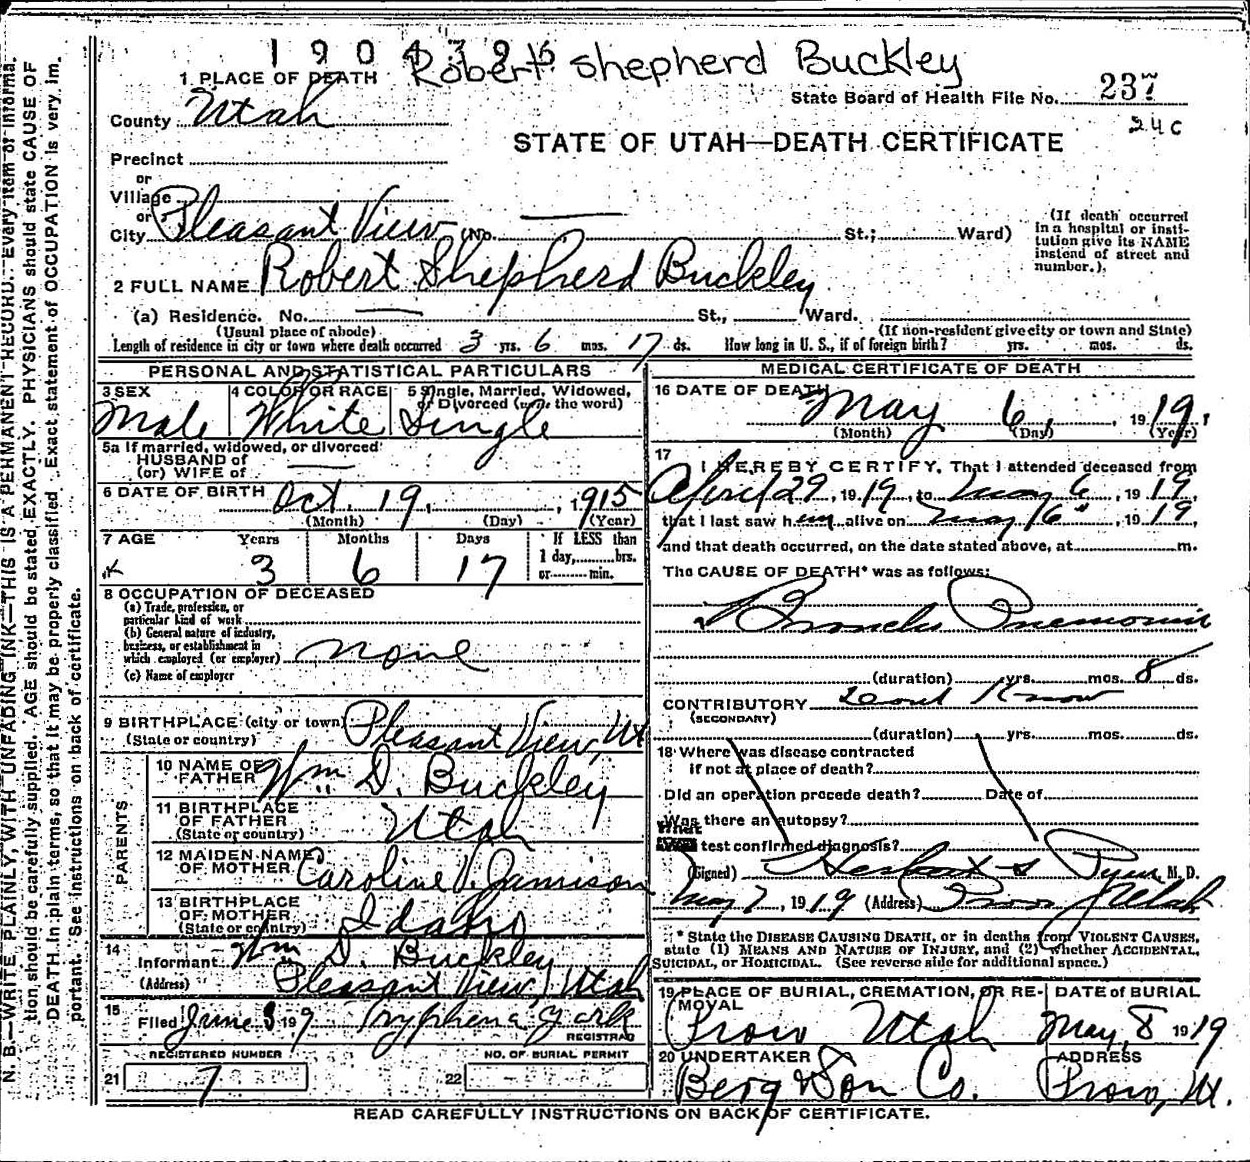 1904396
Robert Shepherd Buckley
1 PLACE OF DEATH
State Board of Health File No. 237
24C
County Utah
STATE OF UTAH—DEATH CERTIFICATE
Precinct
or
Village
or
City Pleasant View (No. St.; Ward)
(If death occurred in a hospital or institution give its NAME instead of street and number.)
2 FULL NAME Robert Shepherd Buckley
(a) Residence. No. St., Ward.
(Usual place of abode) (If non-resident give city or town and State)
Length of residence in city or town where death occurred 3 yrs. 6 mos. 17 ds. How long in U. S., if of foreign birth? yrs. mos. ds.
PERSONAL AND STATISTICAL PARTICULARS
3 SEX Male
4 COLOR OR RACE White
5 Single, Married, Widowed, or Divorced (write the word) Single
5a If married, widowed, or divorced
HUSBAND of
(or) WIFE of
6 DATE OF BIRTH Oct. 19, 1915
(Month) (Day) (Year)
7 AGE Years Months Days If LESS than
1 day, hrs.
or min.
3 6 17
8 OCCUPATION OF DECEASED
(a) Trade, profession, or
particular kind of work
(b) General nature of industry,
business, or establishment in
which employed (or employer) none
(c) Name of employer
9 BIRTHPLACE (city or town) Pleasant View, Ut
(State or country)
PARENTS
10 NAME OF FATHER Wm D. Buckley
11 BIRTHPLACE OF FATHER Utah
(State or country)
12 MAIDEN NAME OF MOTHER Caroline V. Jamison
13 BIRTHPLACE OF MOTHER Idaho
(State or country)
14
Informant Wm D. Buckley
(Address) Pleasant View, Utah
15
Filed June 3 1919 Tryphena York
REGISTRAR
REGISTERED NUMBER
21 7
NO. OF BURIAL PERMIT
22
MEDICAL CERTIFICATE OF DEATH
16 DATE OF DEATH May 6, 1919
(Month) (Day) (Year)
17
I HEREBY CERTIFY, That I attended deceased from
April 29, 1919, to May 6, 1919,
that I last saw him alive on May 6", 1919,
and that death occurred, on the date stated above, at m.
The CAUSE OF DEATH* was as follows:
Broncho Pnemonia
(duration) yrs. mos. 8 ds.
CONTRIBUTORY Dont Know
(SECONDARY)
(duration) yrs. mos. ds.
18 Where was disease contracted
if not at place of death?
Did an operation precede death? Date of
Was there an autopsy?
What test confirmed diagnosis?
(Signed) Herbert S Pyne M. D.
May 7, 1919 (Address) Provo Utah
* State the DISEASE CAUSING DEATH, or in deaths from VIOLENT CAUSES,
state (1) MEANS AND NATURE OF INJURY, and (2) whether ACCIDENTAL,
SUICIDAL, OR HOMICIDAL. (See reverse side for additional space.)
19 PLACE OF BURIAL, CREMATION, OR REMOVAL Provo Utah
DATE of BURIAL May, 8 1919
20 UNDERTAKER Berg & Son Co.
ADDRESS Provo, Ut.
READ CAREFULLY INSTRUCTIONS ON BACK OF CERTIFICATE.
N. B.—WRITE PLAINLY, WITH UNFADING INK—THIS IS A PERMANENT RECORD. Every item of information should be carefully supplied. AGE should be stated EXACTLY. PHYSICIANS should state CAUSE OF DEATH in plain terms, so that it may be properly classified. Exact statement of OCCUPATION is very important. See instructions on back of certificate.